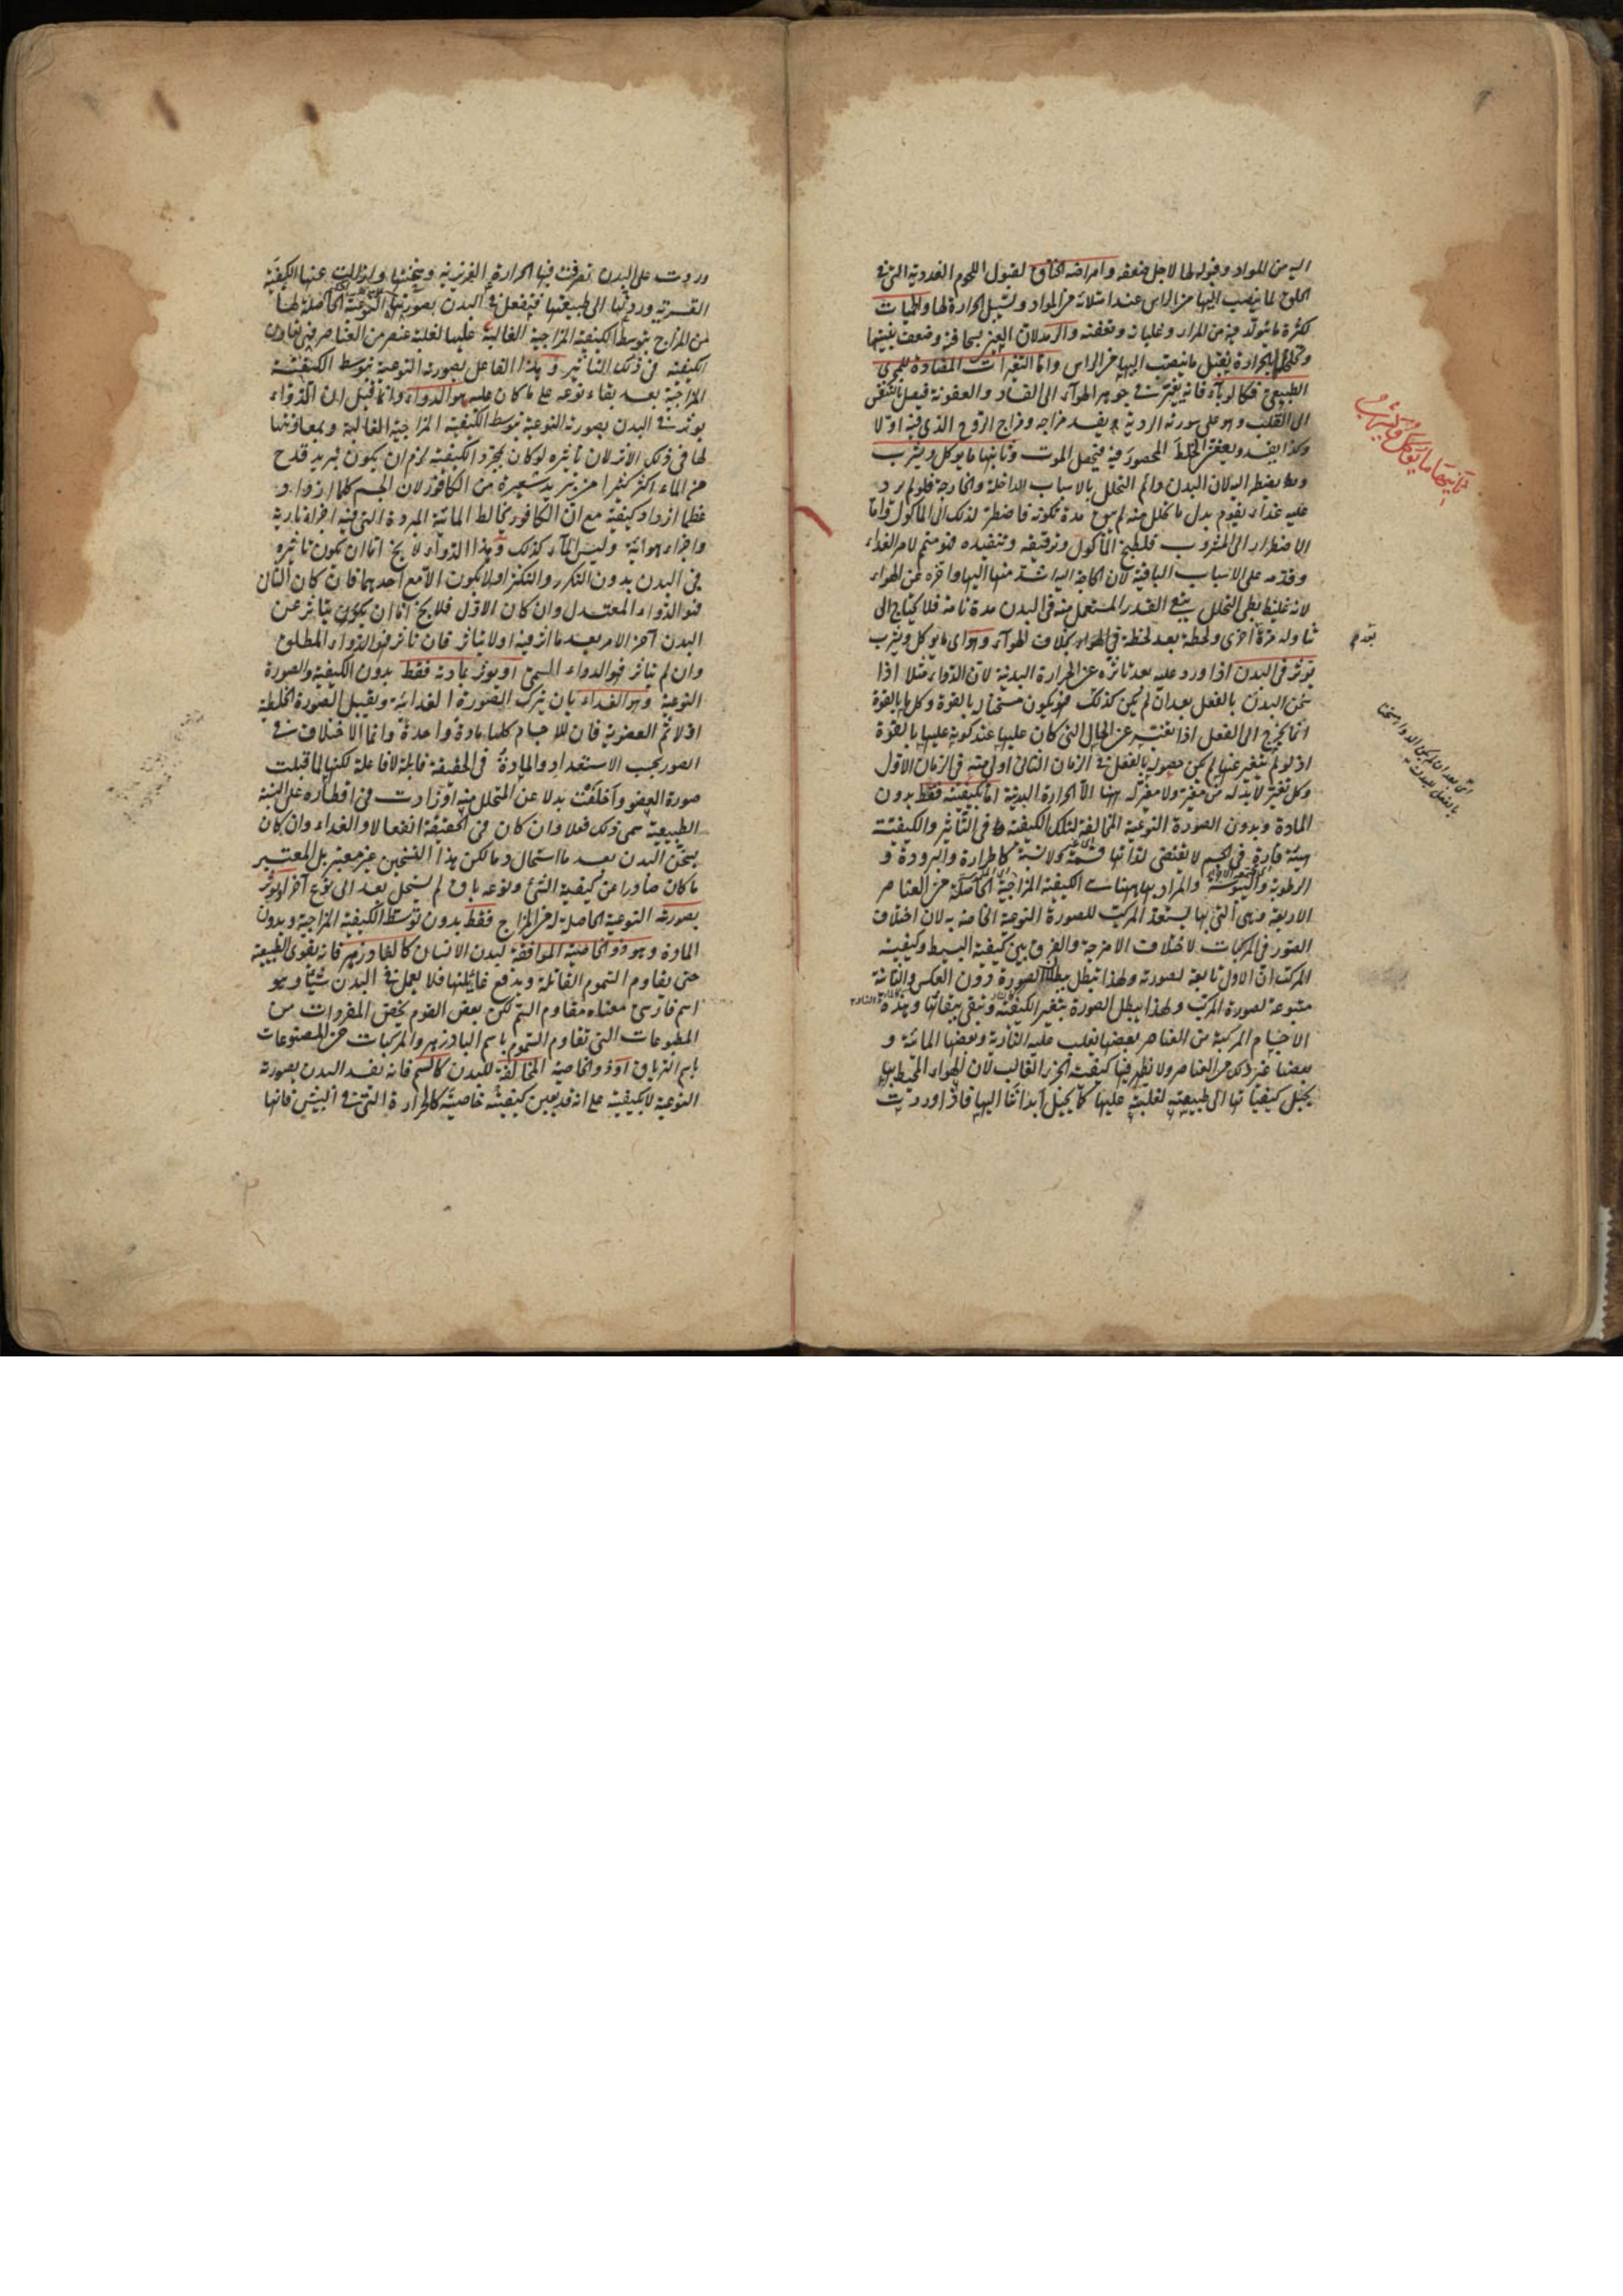 اليه من المواد وقبوله لها لاجل ضعفه وامراضه الخناق لقبول اللحوم الغددية التي في
الحلق لما ينصب اليها من الراس عند امتلائه من المواد وتسييل الحرارة لها والحميات
لكثرة ما يتولد فيه من المرار وغليانه وتعفنه والرمد لان العين بسخافتها وضعف بنيتها
وتخلخلها بالحرارة يقبل ما ينصب اليها من الراس واما التغيرات المضادة للمجرى
الطبيعي فكالوباء فانه يغير في جوهر الهواء الى الفساد والعفونة فيصل بالتنفس
الى القلب وهو على سورته الردية يفسد مزاجه ومزاج الروح الذي فيه اولا
وكذا يفسد ويعفن الخلط المحصور فيه فيحصل الموت وثانيها ما يوكل ويشرب
وهو يضطر اليه لان البدن دائم التحلل بالاسباب الداخلة والخارجة فلو لم يرد
عليه غذاء يقوم بدل ما تحلل منه لم يبق مدة تكونه فاضطر لذلك الى الماكول واما
الاضطرار الى المشروب فلطبخ الماكول وترقيقه وتنفيذه فهو متمم لامر الغذاء
وقدمه على الاسباب الباقية لان الحاجة اليه اشد منها اليها واخره عن الهواء
لانه غليظ بطئ التحلل يبقى القدر المستعمل منه في البدن مدة تامة فلا يحتاج الى
تناوله مرة اخرى ولحظة بعد لحظة بخلاف الهواء وهو اى ما يوكل ويشرب
يوثر في البدن اذا ورد عليه بعد تاثره عن الحرارة البدنية لان الدواء مثلا اذا
سخن البدن بالفعل بعد ان لم يكن كذلك فهو يكون مسخنا له بالقوة وكل ما بالقوة
انما يخرج الى الفعل اذا تغير عن الحال التي كان عليها عند كونه عليها بالقوة
اذ لو لم يتغير عنها لم يكن حصوله بالفعل في الزمان الثاني اولى منه في الزمان الاول
وكل تغير لا بد له من مغير ولا مغير له ههنا الا الحرارة البدنية اما بكيفيته فقط بدون
المادة وبدون الصورة النوعية المخالفة لتلك الكيفية في التاثير والكيفية
هيئة قارة في الجسم لا تقتضي لذاتها قسمة ولا نسبة كالحرارة والبرودة و
الرطوبة واليبوسة والمراد بها ههنا الكيفية المزاجية الحاصلة من العناصر
الاربعة وهى التي بها يستعد المركب للصورة النوعية الخاصة به لان اختلاف
الصور في المركبات لاختلاف الامزجة والفرق بين كيفية البسيط وكيفية
المركب ان الاول تابعة لصورته ولهذا تبطل ببطلان الصورة دون العكس والثانية
متبوعة لصورة المركب ولهذا يبطل الصورة بتغير الكيفية وتبقى ببقائها وهذه
الاجسام المركبة من العناصر بعضها يغلب عليه النارية وبعضها المائية و
بعضها غير ذلك من العناصر ولا يظهر فيها كيفية الجزء الغالب لان الهواء المحيط بها
يحيل كيفياتها الى طبيعته لغلبته عليها كما يحيل ابداننا اليها فاذا وردت
ثانيها ما يوكل ويشرب
وردت على البدن تصرفت فيها الحرارة الغريزية وسخنتها وازالت عنها الكيفية
القسرية وردتها الى طبيعتها فتفعل في البدن بصورتها النوعية الحاصلة لها
من المزاج بتوسط الكيفية المزاجية الغالبة عليها لغلبة عنصر من العناصر فهى تعاون
الكيفية في ذلك التاثير وهذا الفاعل بصورته النوعية بتوسط الكيفية
المزاجية بعد بقاء نوعه على ما كان عليه هو الدواء وانما قيل ان الدواء
يوثر في البدن بصورته النوعية بتوسط الكيفية المزاجية الغالبة وبمعاونتها
لها في ذلك الاثر لان تاثيره لو كان بمجرد الكيفية لزم ان يكون تبريد قدح
من الماء اكثر كثيرا من تبريد شعيرة من الكافور لان الجسم كلما ازداد
عظما ازداد كيفية مع ان الكافور يخالط المائية المبردة التي فيه اجزاء نارية
واجزاء هوائية وليس الماء كذلك وهذا الدواء لا يخ اما ان يكون تاثيره
في البدن بدون التكرر والتكثر اولا يكون الا مع احدهما فان كان الثاني
فهو الدواء المعتدل وان كان الاول فلا يخ اما ان يكون يتاثر عن
البدن آخر الامر بعد ما اثر فيه اولا يتاثر فان تاثر فهو الدواء المطلق
وان لم يتاثر فهو الدواء السمى او يوثر بمادته فقط بدون الكيفية والصورة
النوعية وهو الغذاء بان يترك الصورة الغذائية ويقبل الصورة الخلطية
اولا ثم العضوية فان للاجسام كلها مادة واحدة وانما الاختلاف في
الصور بحسب الاستعداد والمادة في الحقيقة قابلة لا فاعلة لكنها لما قبلت
صورة العضو واخلفت بدلا عن المتحلل منه او زادت في اقطاره على النسبة
الطبيعية سمى ذلك فعلا وان كان في الحقيقة انفعالا والغذاء وان كان
يسخن البدن بعد ما استحال دما لكن هذا التسخين غير معتبر بل المعتبر
ما كان صادرا عن كيفية الشئ ونوعه باق لم يستحل بعد الى نوع آخر او يوثر
بصورته النوعية الحاصلة له من المزاج فقط بدون توسط الكيفية المزاجية وبدون
المادة وهو ذو الخاصية الموافقة لبدن الانسان كالفادزهر فانه يقوى الطبيعة
حتى يقاوم السموم القاتلة ويدفع غائلتها فلا يعمل في البدن شيئا وهو
اسم فارسى معناه مقاوم السم لكن بعض القوم يخص المفردات من
المطبوعات التي تقاوم السموم باسم البادزهر والمركبات من المصنوعات
باسم الترياق او ذو الخاصية المخالفة للبدن كالسم فانه يفسد البدن بصورته
النوعية لا بكيفيته على انه قد يعين كيفيته خاصيته كالحرارة التي في البيش فانها